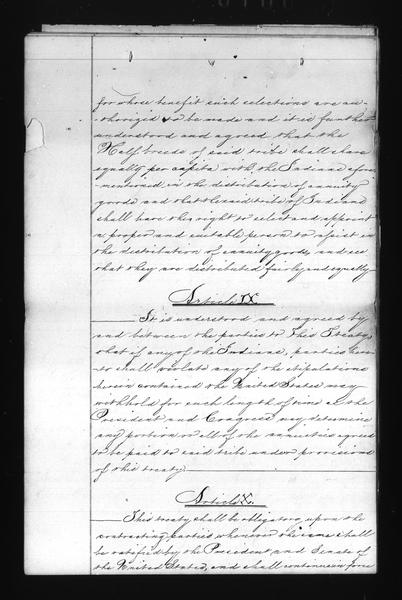 for whose benefit such selections are au-
-thorized to be made and it is further
understood and agreed that the
Half breeds of said tribe shall share
equally per capita with the Indians afore
-mentioned in the distribution of annuity
goods and that the said tribe of Indians
shall have the right to select and appoint
a proper and suitable person to assist in
the distribution of annuity goods, and see
that they are distributed fairly and equally
Article IX.
It is understood and agreed by
and between the parties to this Treaty
that if any of the Indians, parties here-
to shall violate any of the stipulations
herein contained the United States may
withhold for such length of time as the
President and Congress may determine
any portion or all of the annuities agreed
to be paid to said tribe under provisions
of this treaty
Article X.
This treaty shall be obligatory upon the
contracting parties whenever the same shall
be ratified by the President and Senate of
the United States, and shall continue in force